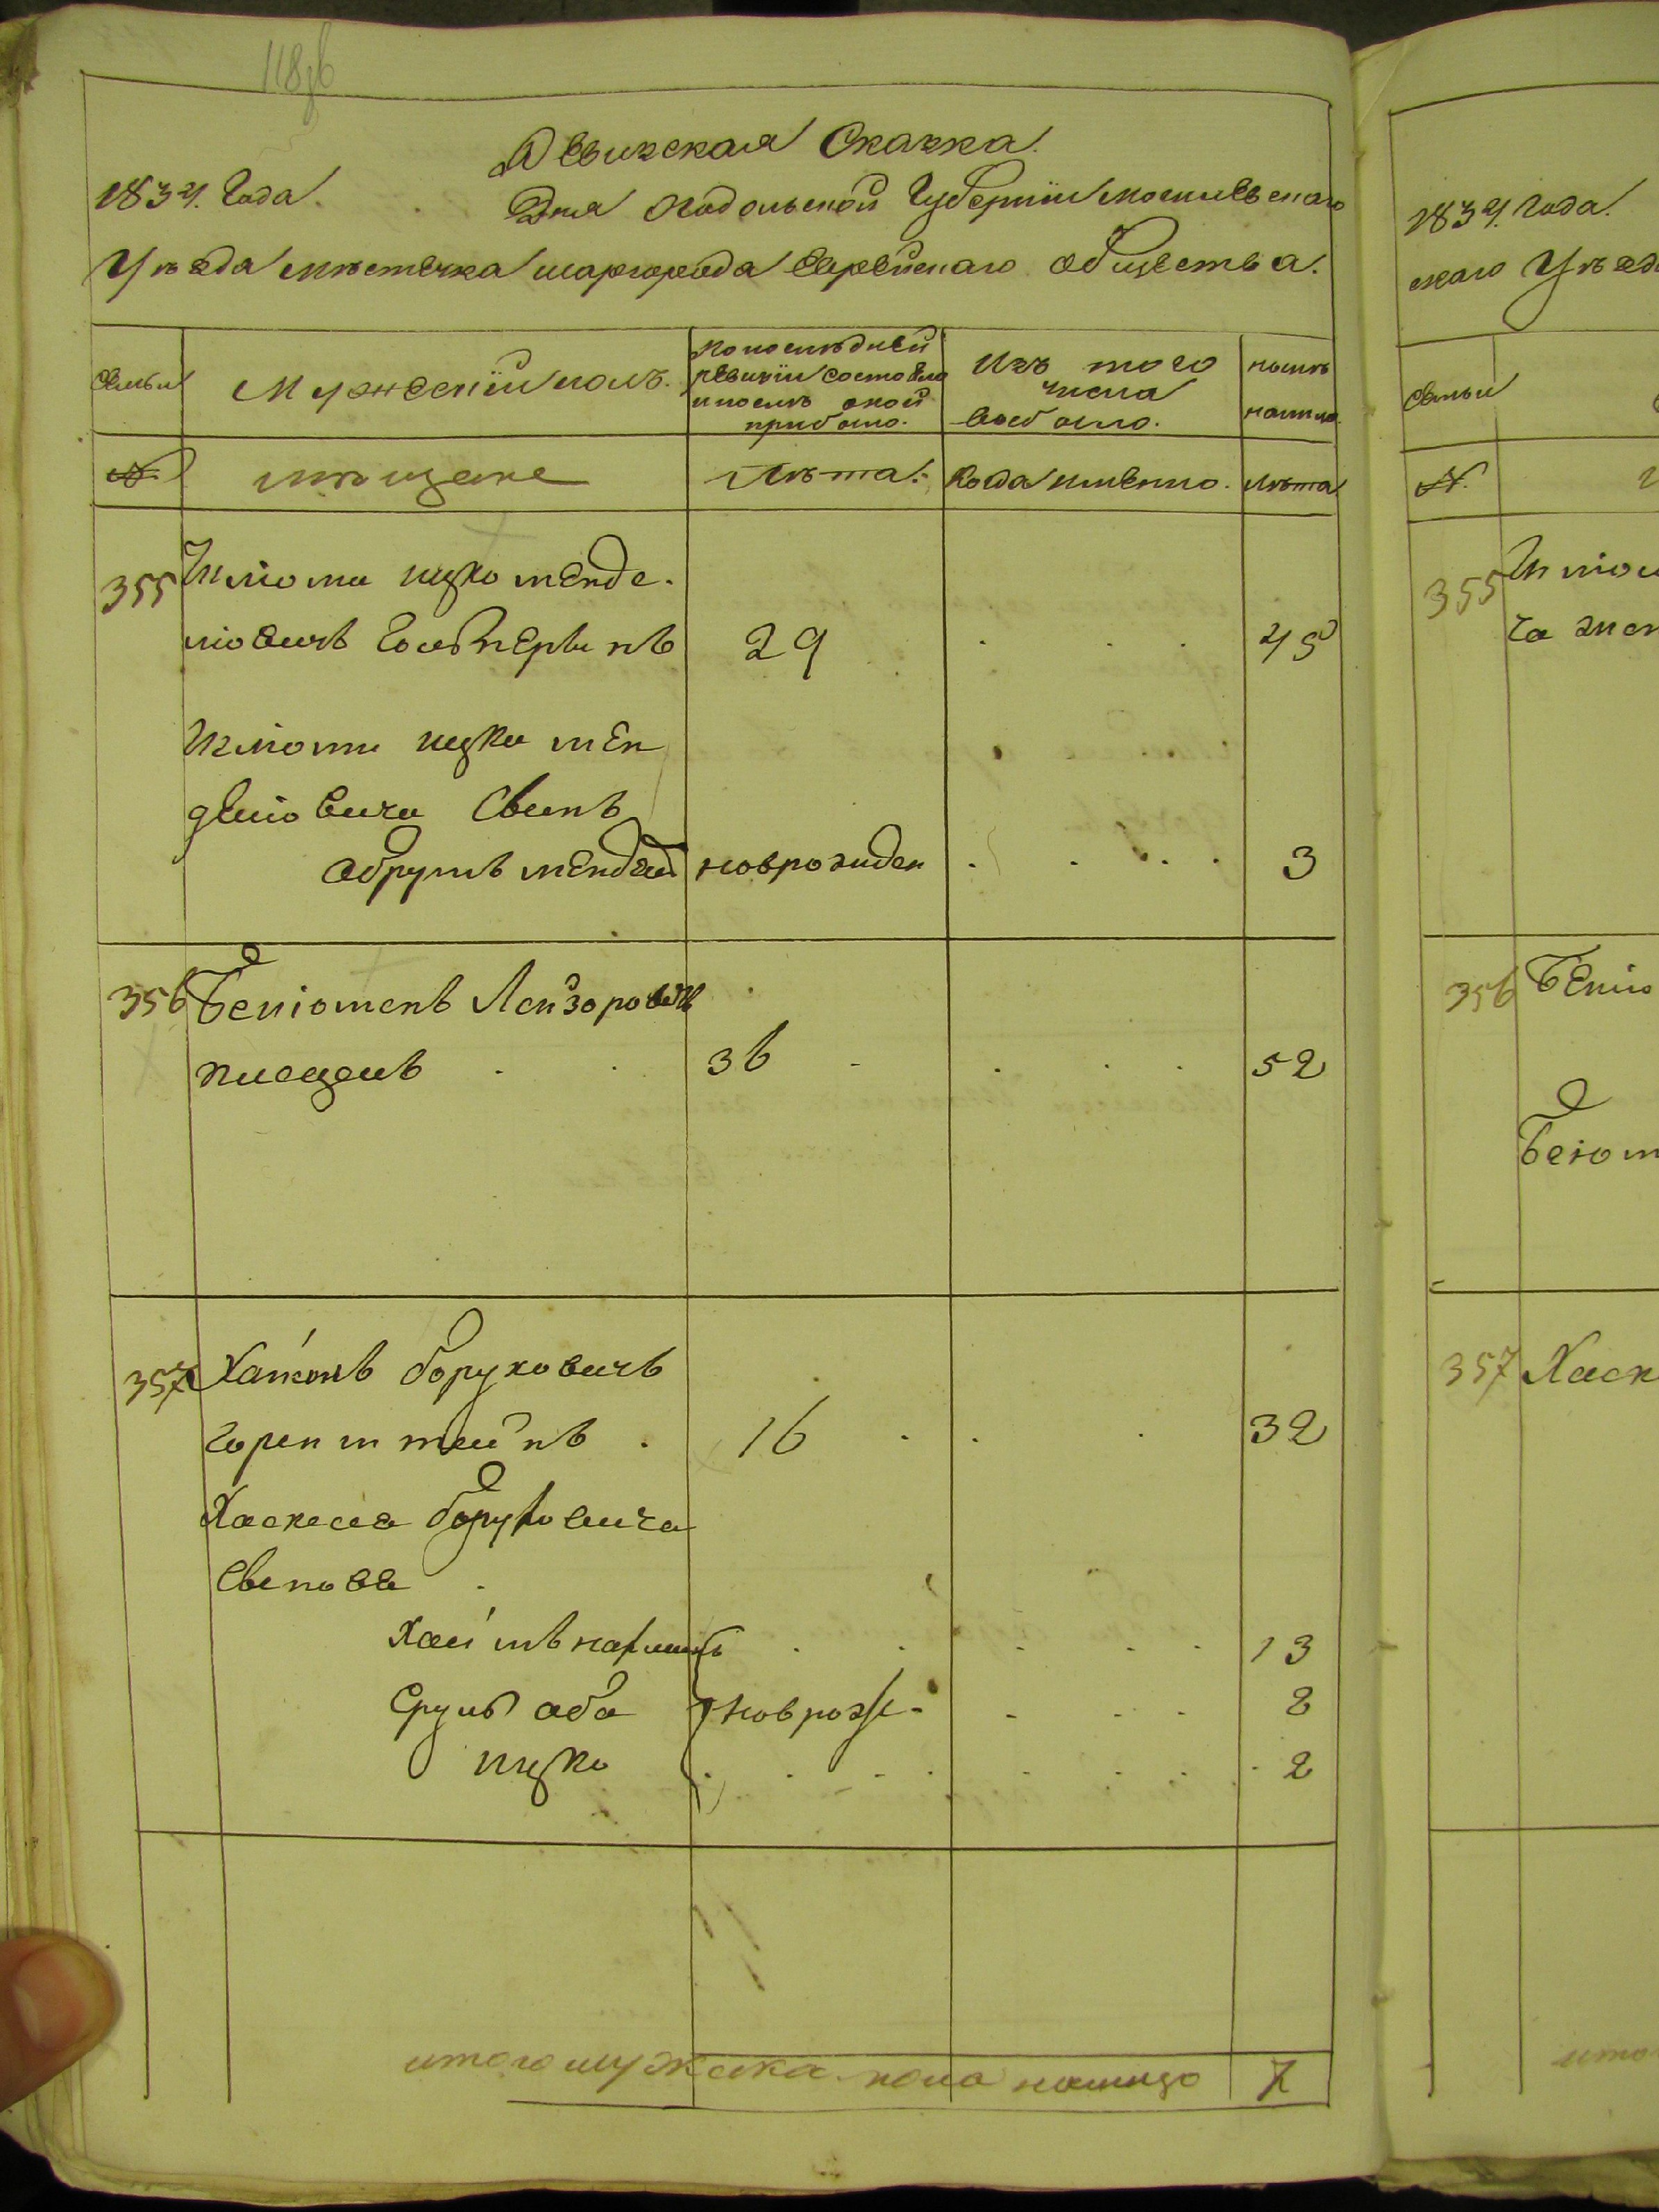 118об
Ревизская Сказка.
1834. Года. Дня Подольской Губернии Могилевскаго
Уезда местечка шаргорода Еврейскаго общества.
семьи
Мужеский полъ.
по последней
ревизии состояло
и после оной
прибыло.
Изъ того
числа
выбыло.
ныне
налицо
№
мещане
Лета.
Когда именно.
лета
355 Шлиоми ицко менде-
лиовичъ 29 45
Шлиоми ицки мен
делиовича Сынъ
новрожден 3
356 Бениоменъ Лейзоровичъ
36 52
357 боруковичъ
горенштейнъ 16 32
Хаскеля боруковича
Сыновя
13
Сруль аба новрожд 8
ицко 2
итого мужска пола налицо 7
1834. года.
скаго Уезд
семьи
№
355 Шлиом
ча жен
356 Бенио
Бениом
357 Хаск
итог